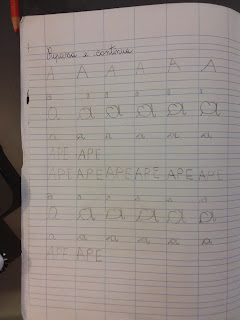 Ripassa e continua
A A A A A A
a a a a a a
a a a a a a
a a a a a a
APE APE
APE APE APE APE APE APE
a a a a a a
a a a a a a
a a a a a a
APE APE